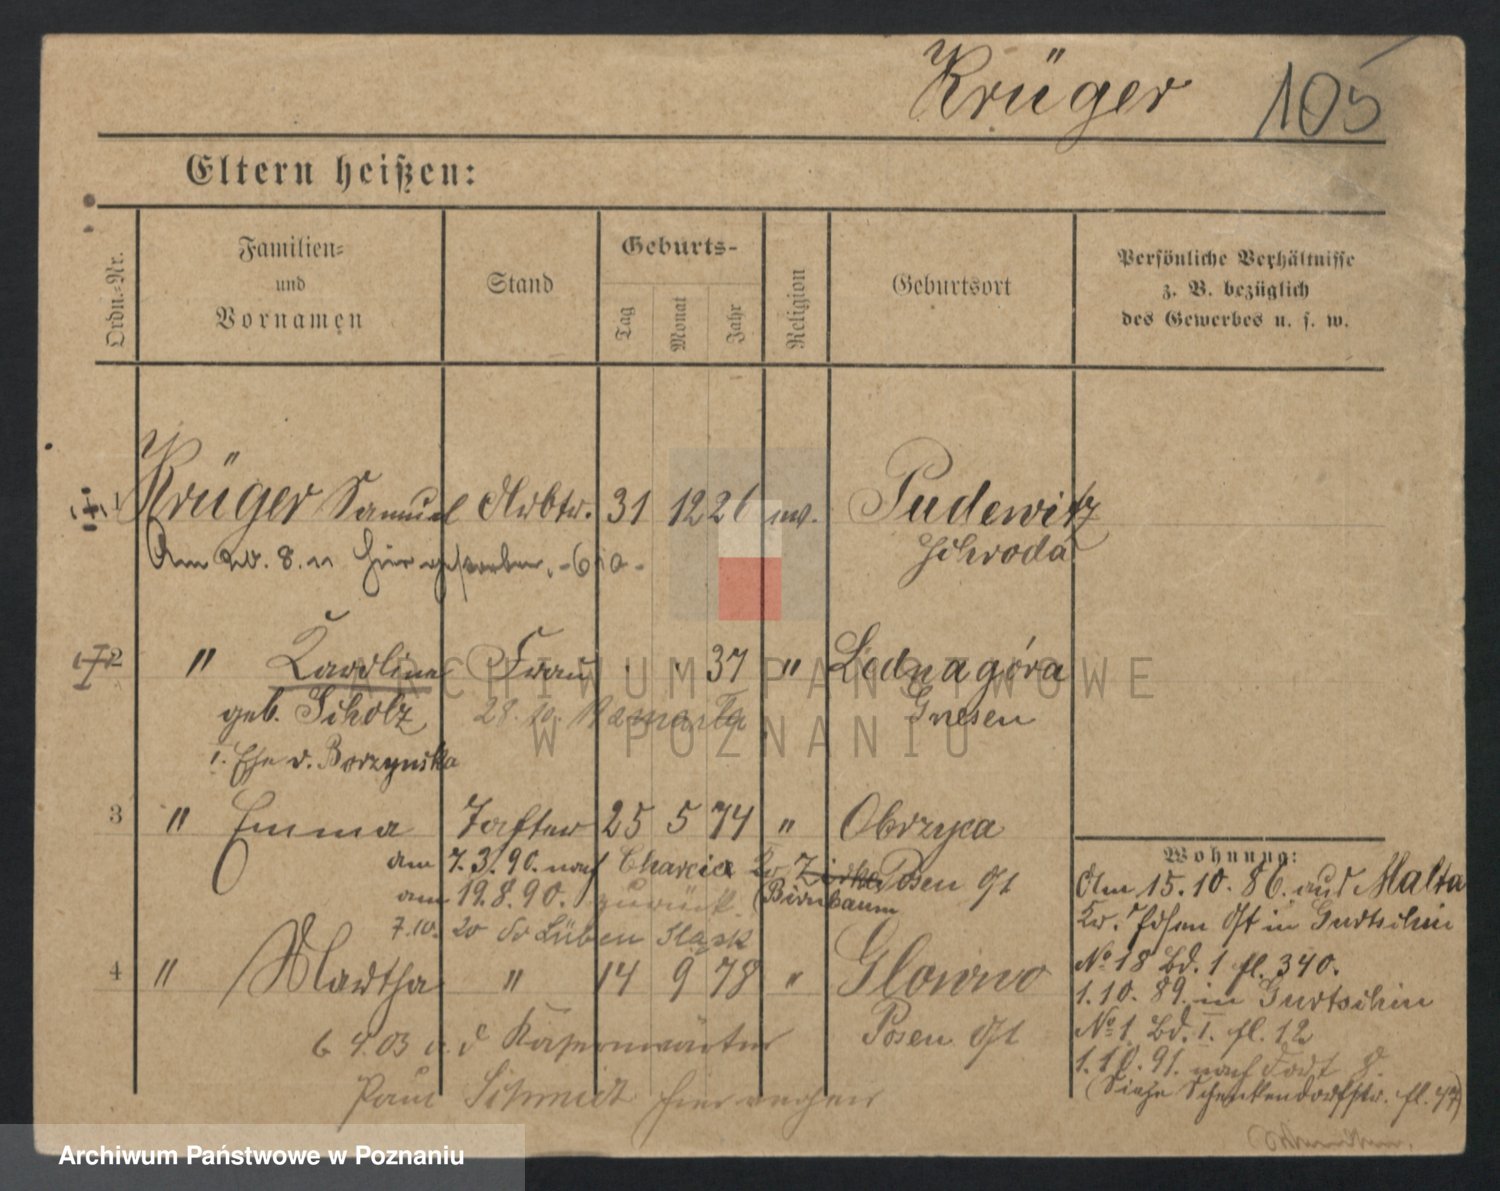 Krüger 105
Eltern heißen:
Ordn.-Nr.
Familien-
und
Vornamen
Stand
Geburts-
Tag
Monat
Jahr
Religion
Geburtsort
Persönliche Verhältnisse
z. B. bezüglich
des Gewerbes u. s. w.
1 Krüger Samuel Arbtr. 31 12 26 ev. Pudewitz
Schroda
Am 20. 8. hier gestorben.
2 " Karoline Frau 37 " Lednagóra
geb. Scholz 28. 10. Gnesen
1. Ehe v. Borzynska
3 " Emma Tochter 25 5 74 " Obrzyca
am 7.3.90. nach Charcic Kr Zirke Posen Ost
am 19.8.90. zurück. (Birnbaum
7.10. Lüben
4 " Martha " 14 9 78 " Glowno
Posen Ost
6 4.03 a. d Kasernwärter
Paul Schmidt hier
Wohnung:
Am 15.10.86. aus Malta
Kr. Posen Ost in Gurtschin
No 18 Bd. 1 fl. 340.
1.10.89. in Gurtschin
No 1 Bd. I. fl. 12
1.10.91. nach Fort 8.
(Siehe Schenkendorfstr. fl. 47)
ARCHIWUM PAŃSTWOWE
W POZNANIU
Archiwum Państwowe w Poznaniu